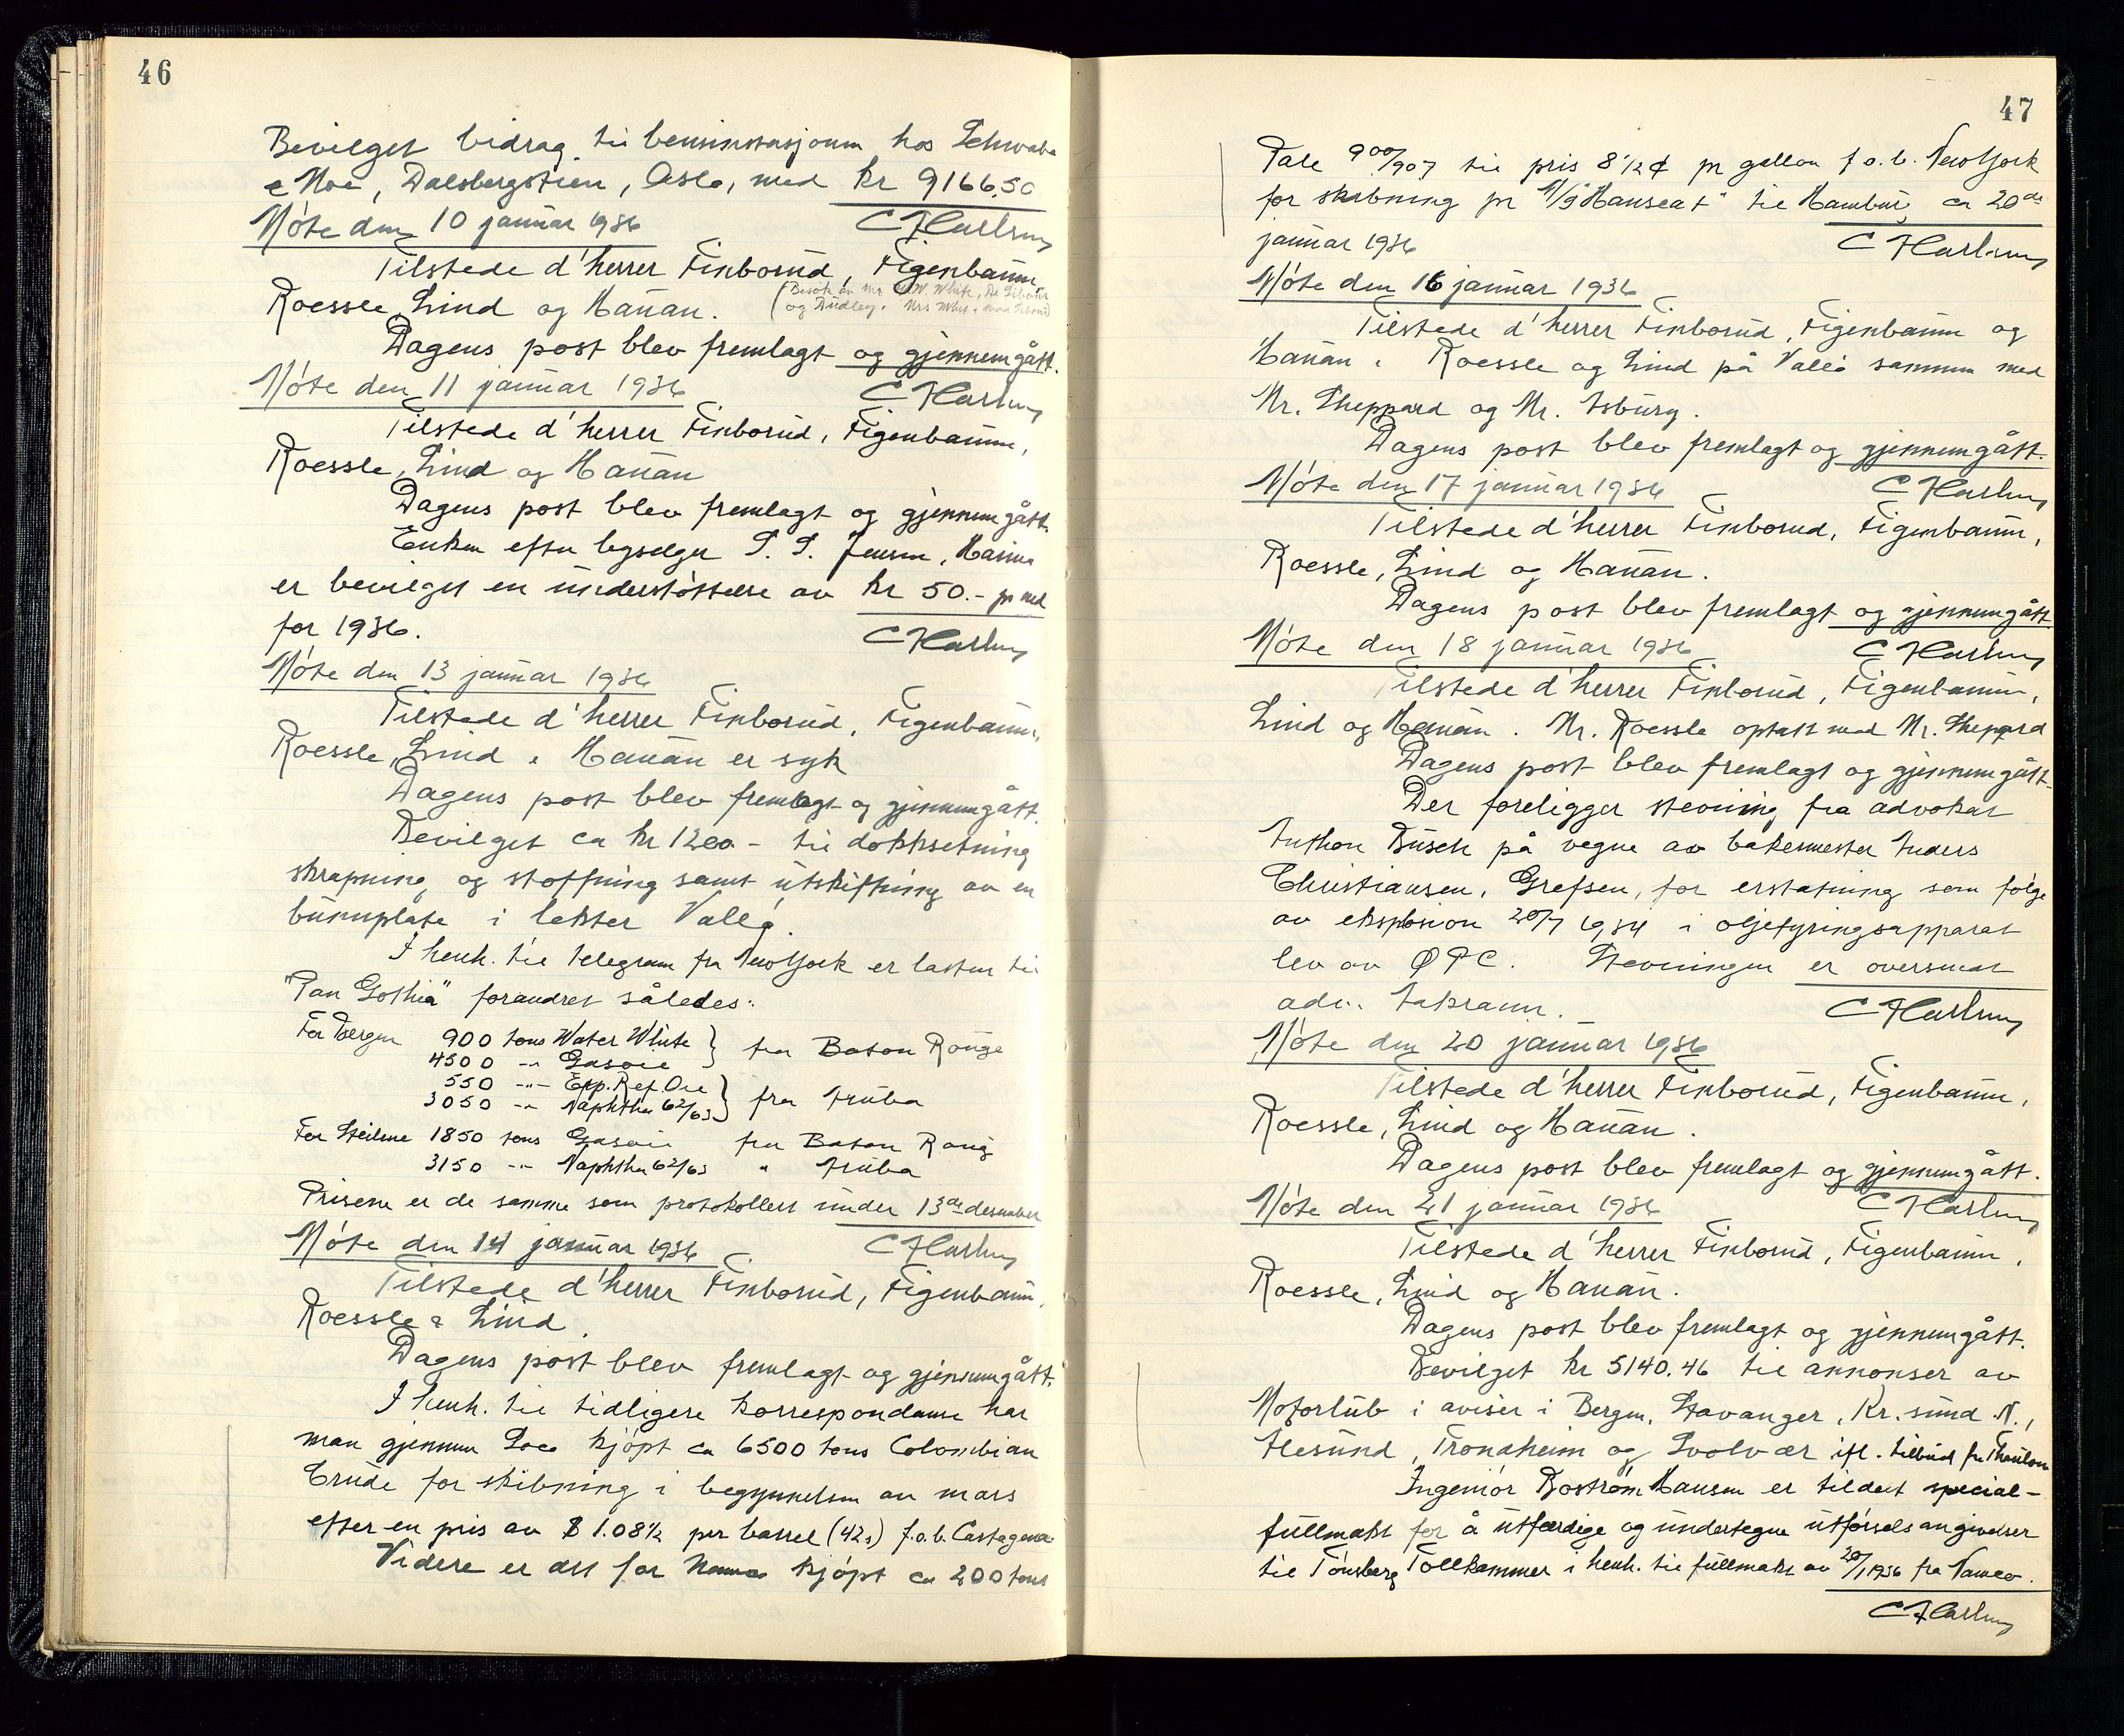 46
Bevilget bidrag til bensinstasjonen hos Schwabe
& Noe, Dalsbergstien, Oslo, med kr 9166,50
Møte den 10 januar 1936
Tilstede d'herrer Finborud, Figenbaum,
Roessle, Lind og Hanan. (Besøk av Mr. W. White,
og Dudley. Mrs White
Dagens post blev fremlagt og gjennemgått.
Møte den 11 januar 1936
Tilstede d'herrer Finborud, Figenbaum,
Roessle, Lind og Hanan
Dagens post blev fremlagt og gjennemgått.
Enken efter S. S. Jensen,
er bevilget en understøttelse av kr 50.- pr md
for 1936.
Møte den 13 januar 1936
Tilstede d'herrer Finborud, Figenbaum,
Roessle, Lind. Hanan er syk
Dagens post blev fremlagt og gjennemgått.
Bevilget ca kr 1200.- til dokksetning
skrapning og stoffning samt utskiftning av en
bunnplate i lekter Vallø.
I henh. til telegram fra New York er lasten til
"Pan Gothia" forandret således:
For Bergen 900 tons Water White } fra Baton Rouge
4500 -"- Gasoil
550 -"- Exp. Ref. Oil } fra Aruba
3050 -"- Naphtha 62/63
For Steilene 1850 tons Gasoil fra Baton Roug
3150 -"- Naphtha 62/63 " Aruba
Prisene er de samme som protokollert under 13de desember
Møte den 14 januar 1936
Tilstede d'herrer Finborud, Figenbaum,
Roessle & Lind.
Dagens post blev fremlagt og gjennemgått.
I henh. til tidligere korrespondanse har
man gjennem Soco kjøpt ca 6500 tons Colombian
Crude for skibning i begynnelsen av mars
efter en pris av $ 1.08½ per barrel (42s) f.o.b. Cartagena
Videre er det for kjøpt ca 200 tons
47
Pale 900/907 til pris 8½ ¢ pr gallon f.o.b. New York
for skibning pr M/S "Hanseat" til Hamburg ca 20de
januar 1936
Møte den 16 januar 1936
Tilstede d'herrer Finborud, Figenbaum og
Hanan. Roessle og Lind på Vallø sammen med
Mr. Sheppard og Mr. Asbury.
Dagens post blev fremlagt og gjennemgått.
Møte den 17 januar 1936
Tilstede d'herrer Finborud, Figenbaum,
Roessle, Lind og Hanan.
Dagens post blev fremlagt og gjennemgått.
Møte den 18 januar 1936
Tilstede d'herrer Finborud, Figenbaum,
Lind og Hanan. Mr. Roessle optatt med Mr. Sheppard
Dagens post blev fremlagt og gjennemgått.
Der foreligger stevning fra advokat
Anthon Busch på vegne av bakermester Anders
Christiansen, Grefsen, for erstatning som følge
av eksplosion 20/7 1934 i oljefyringsapparat
lev av ØPC. Stevningen er oversendt
adv.
Møte den 20 januar 1936
Tilstede d'herrer Finborud, Figenbaum,
Roessle, Lind og Hanan.
Dagens post blev fremlagt og gjennemgått.
Møte den 21 januar 1936
Tilstede d'herrer Finborud, Figenbaum,
Roessle, Lind og Hanan.
Dagens post blev fremlagt og gjennemgått.
Bevilget kr 5140.46 til annonser av
Motorlub i aviser i Bergen, Stavanger, Kr.sund N.,
Ålesund, Trondheim og Svolvær ifl. tilbud fra
Ingeniør Boström Hansen er tildelt special-
fullmakt for å utferdige og undertegne utførselsangivelser
til Tønsberg Tollkammer i henh. til fullmakt av 20/1 1936 fra